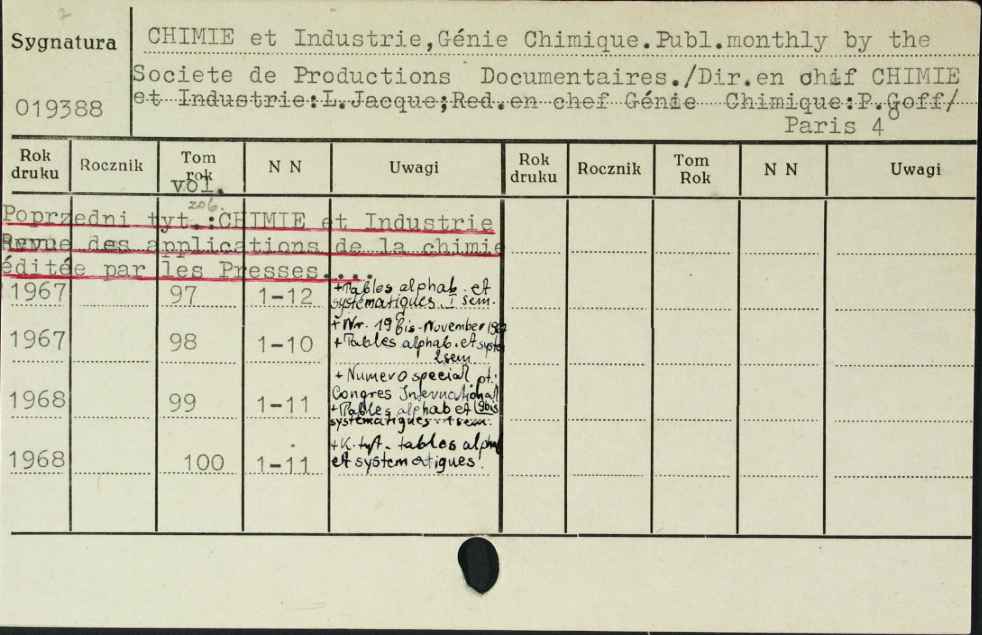 2
Sygnatura
019388
CHIMIE et Industrie,Génie Chimique.Publ.monthly by the
Societe de Productions Documentaires./Dir.en chif CHIMIE
et Industrie:L.Jacque;Red.en chef Génie Chimique:P.Goff/
Paris 4°
Rok druku Rocznik Tom rok N N Uwagi Rok druku Rocznik Tom Rok N N Uwagi
vol.
206.
Poprzedni tyt.:CHIMIE et Industrie
Revue des applications de la chimie
éditée par les Presses....
1967 97 1-12 +Tables alphab. et
systématiques I sem.
+ Nr. 19 bis-November
1967 98 1-10 + Tables alphab. et
2sem
+ Numero special pt.
Congres International
1968 99 1-11 +Tables alphab et 9bis
systématiques 1 sem.
+K. tyt. tables alph
1968 100 1-11 et systematiques.